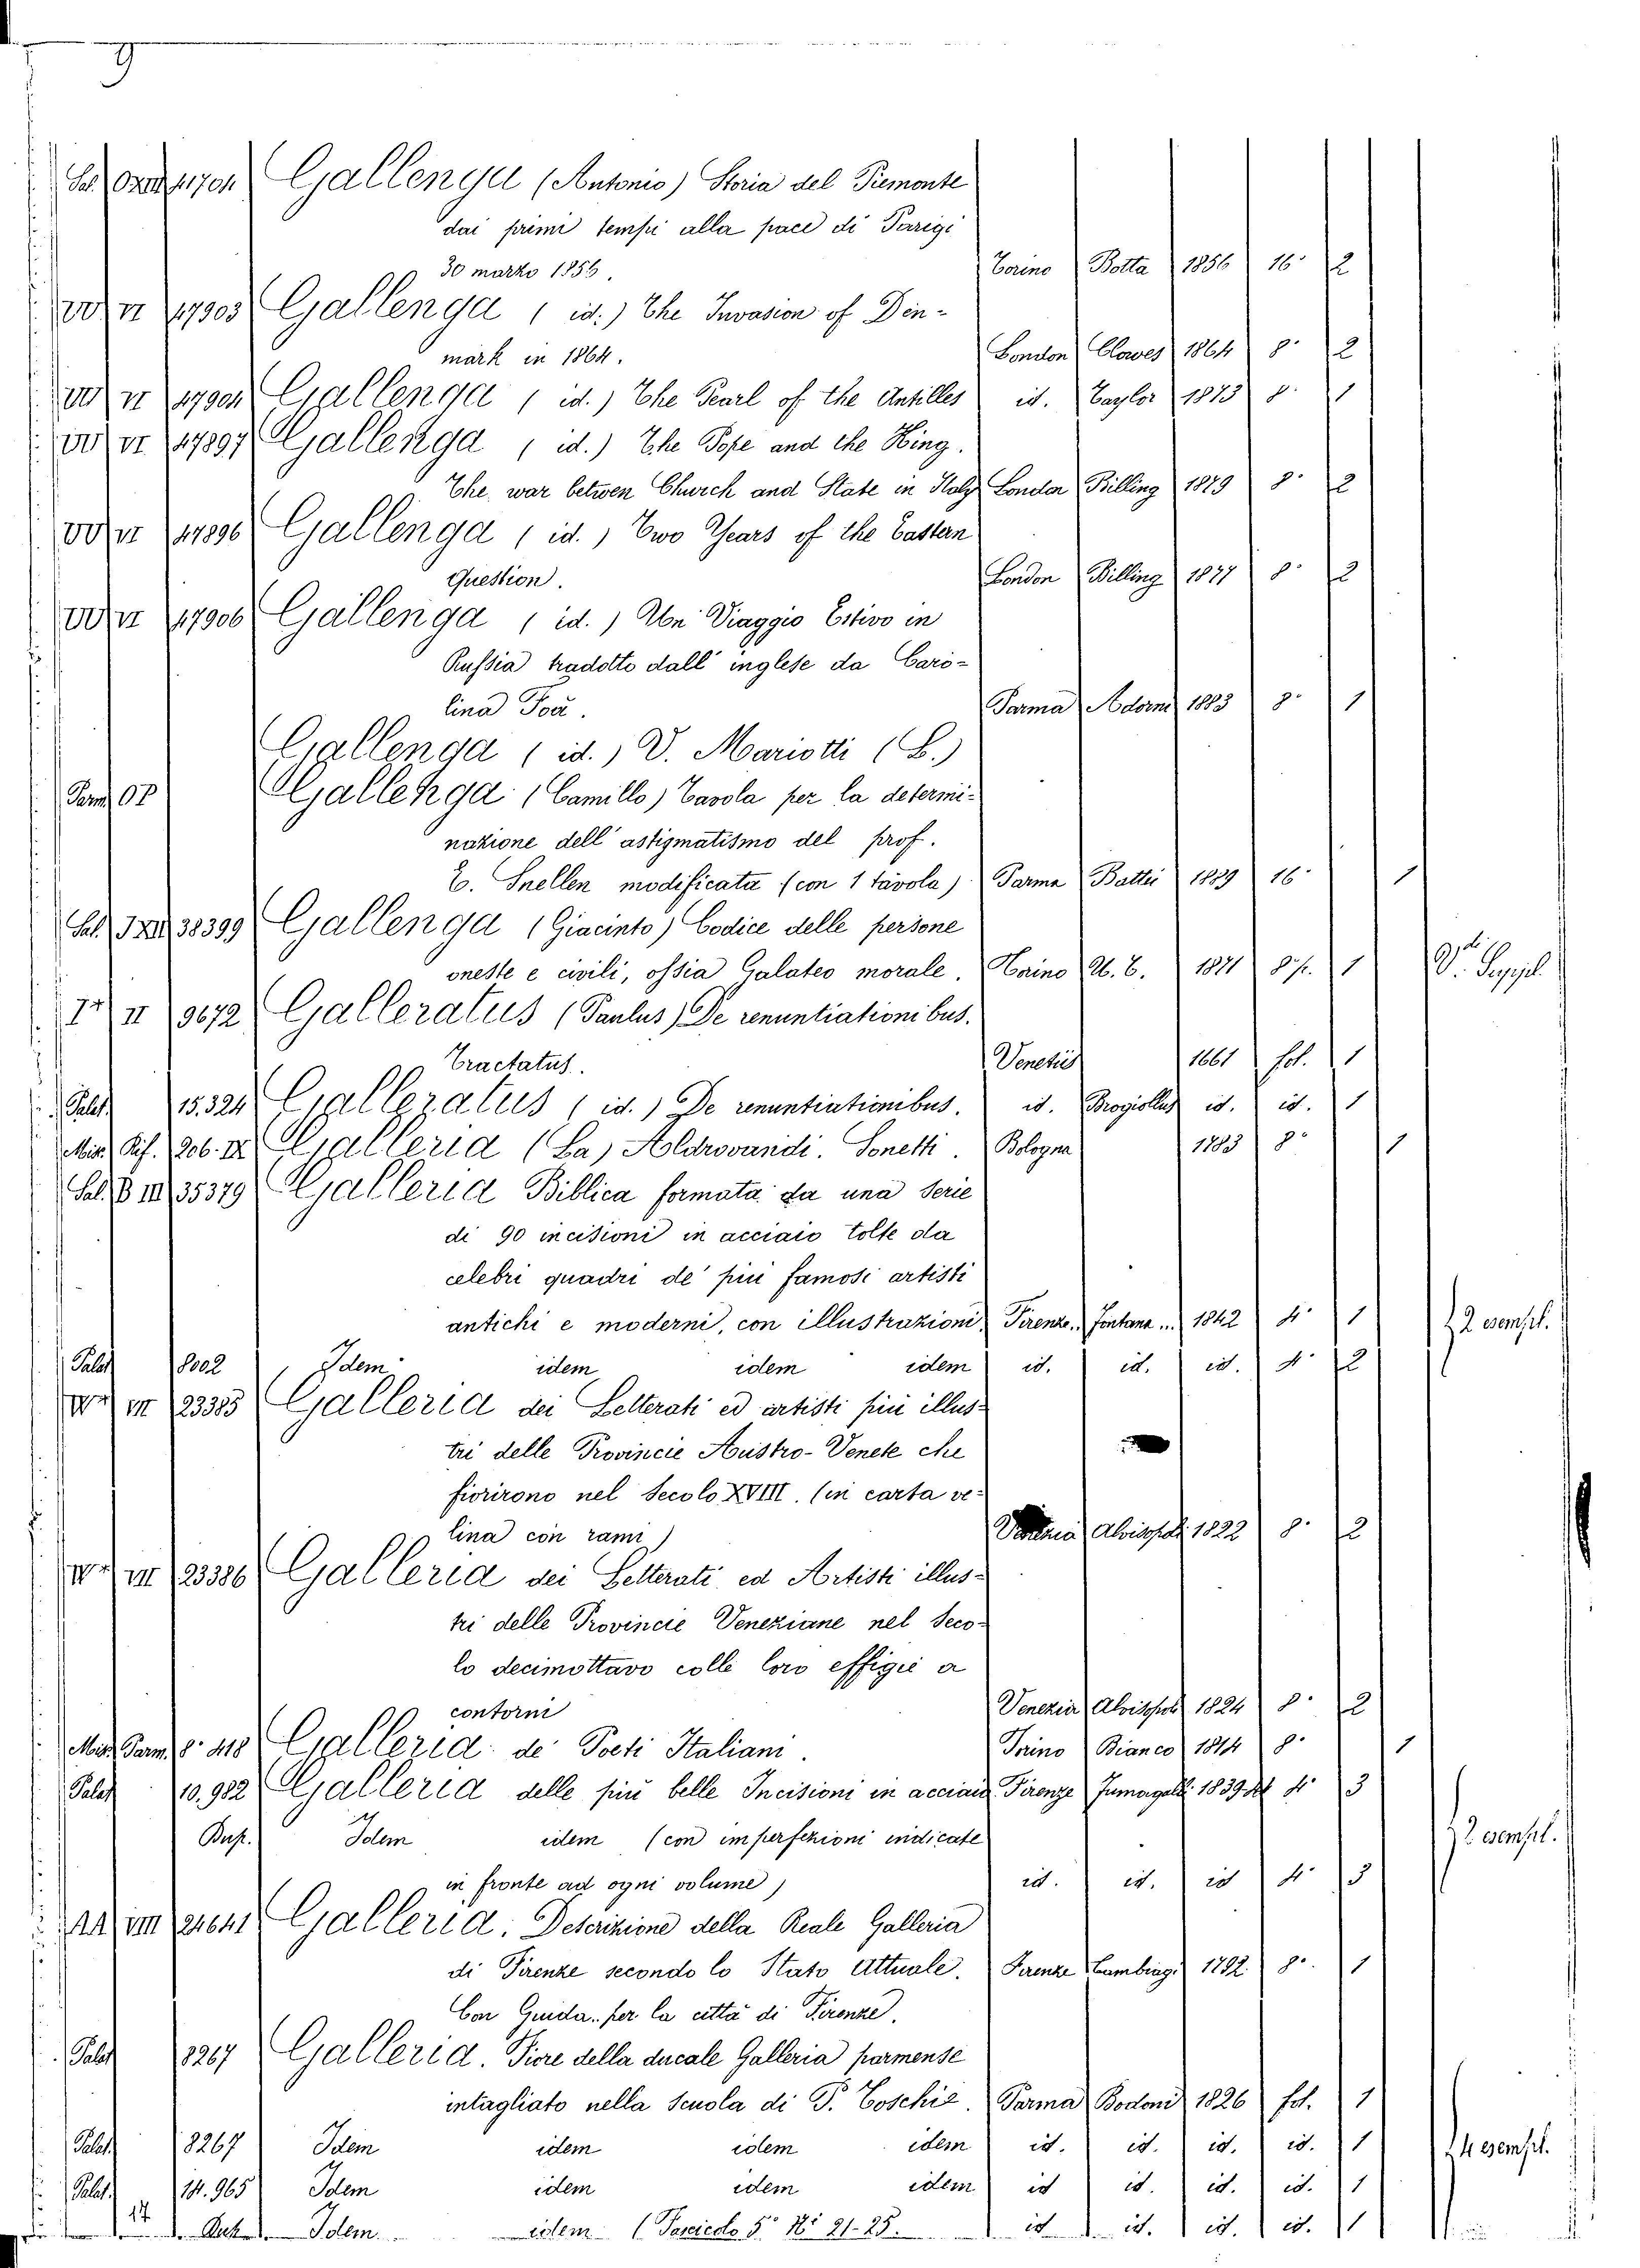 9
Sal. 41701 Gallenga (Antonio) Storia del Piemonte
dai primi tempi alla pace di Parigi
30 marzo 1856. Torino Botta 1856 16° 2
VI 47903 Gallenga (id.) The Invasion of Den-
mark in 1864. London Clowes 1864 8° 2
VI 47904 Gallenga (id.) The Pearl of the Antilles id. Taylor 1873 8° 1
VI 47897 Gallenga (id.) The Pope and the King.
The war betwen Church and State in Italy London Billing 1879 8° 2
VI 47896 Gallenga (id.) Two Years of the Eastern
Question. London Billing 1877 8° 2
VI 47906 Gallenga (id.) Un Viaggio Estivo in
Russia tradotto dall' inglese da Caro-
lina Foà. Parma Adorni 1883 8° 1
Gallenga (id.) V. Mariotti (L.)
Parm. Gallenga (Camillo) Tavola per la determi-
nazione dell'astigmatismo del prof.
E. Snellen modificata (con 1 tavola) Parma Battei 1889 16° 1
Sal. 38399 Gallenga (Giacinto) Codice delle persone
oneste e civili, ossia Galateo morale. Torino U. T. 1871 8° p. 1
II 9672 Galleratus (Paulus) De renuntiationibus.
Tractatus. Venetiis 1661 fol. 1
Palat. 15.324 Galleratus (id.) De renuntiationibus. id. Brogiollus id. id. 1
Misc. Rif. 206. IX Galleria (La) Aldrovandi. Sonetti. Bologna 1783 8° 1
Sal. B III 35379 Galleria Biblica formata da una serie
di 90 incisioni in acciaio tolte da
celebri quadri de' più famosi artisti
antichi e moderni, con illustrazioni. Firenze Fontana 1842 4° 1 2 esempl.
Palat. 8002 Idem idem idem idem id. id. id. 4° 2
VII 23385 Galleria dei Letterati ed artisti più illus-
tri delle Provincie Austro-Venete che
fiorirono nel Secolo XVIII. (in carta ve-
lina con rami) Venezia Alvisopoli 1822 8° 2
VII 23386 Galleria dei Letterati ed Artisti illus-
tri delle Provincie Veneziane nel seco-
lo decimottavo colle loro effigie a
contorni Venezia Alvisopoli 1824 8° 2
Misc. Parm. 8° 418 Galleria de' Poeti Italiani. Torino Bianco 1814 8° 1
Palat. 10.982 Galleria delle più belle Incisioni in acciaio Firenze Fumagalli 1839 4° 3
Idem idem (con imperfezioni indicate 2 esempl.
in fronte ad ogni volume) id. id. id 4° 3
VIII Galleria. Descrizione della Reale Galleria
di Firenze secondo lo Stato Attuale. Firenze Cambiagi 1792 8° 1
Con Guida per la città di Firenze.
Palat. 8267 Galleria. Fiore della ducale Galleria parmense
intagliato nella Scuola di P. Toschi. Parma Bodoni 1826 fol. 1
Palat. 8267 Idem idem idem idem id. id. id. id. 1 4 esempl.
Palat. 14.965 Idem idem idem idem id id. id. id. 1
14 Idem idem (Fascicolo 5° Ni 21-25. id id. id. id. 1